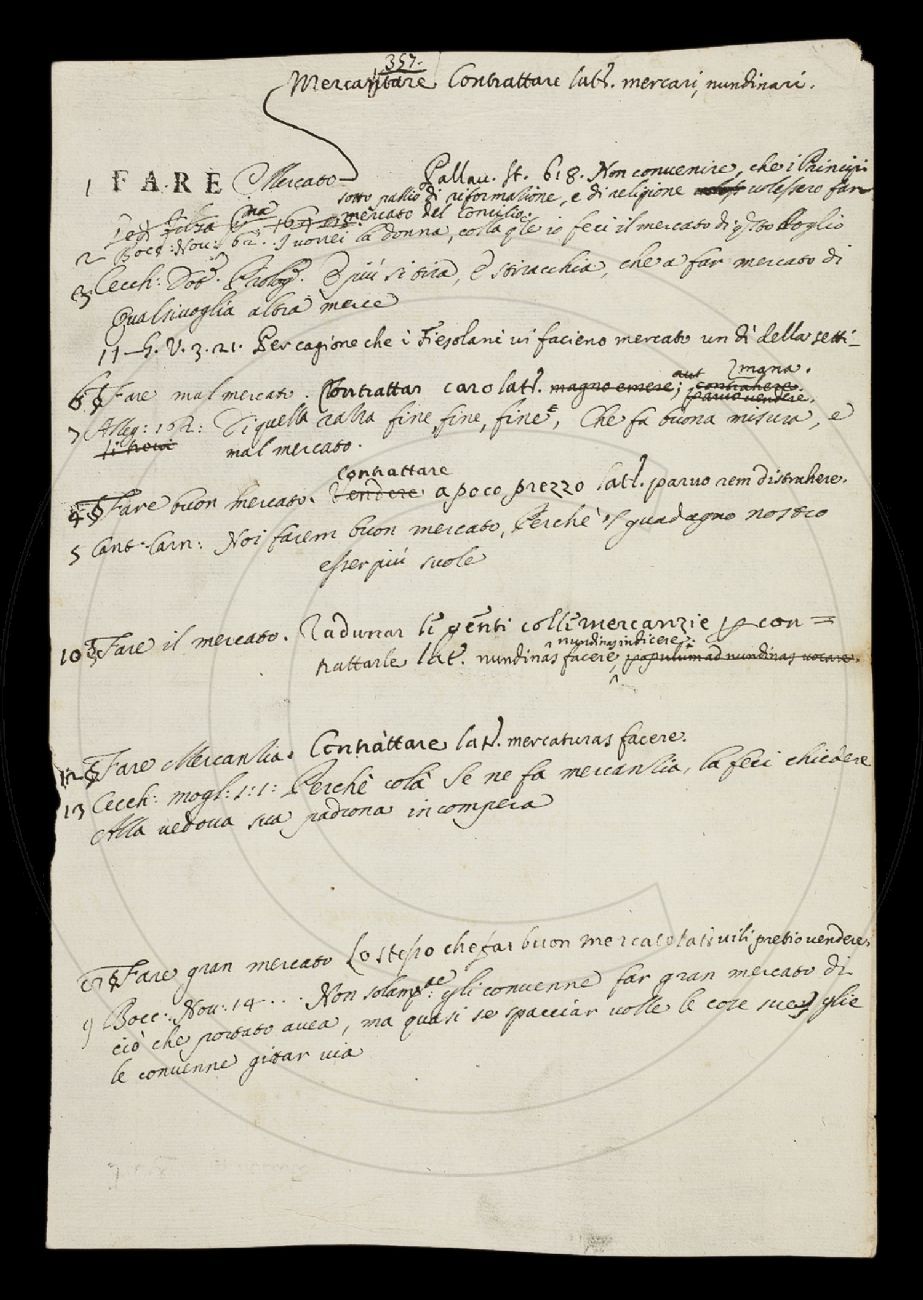 357.
Mercantare Contrattare lat. mercari, nundinari.
1 FARE Mercato Pallav. st. 618. Non convenire, che i Principi
sotto pallio di riformazione, e di religione volessero far
mercato del Concilio.
2 Bocc: Nov: 62. I vorrei la donna, colla qle io feci il mercato di qsto doglio
3 Cecch: Dot. Prolog. E più si tira, e stiracchia, che a far mercato di
Qualsivoglia altra merce
11 G. V. 3. 21. Per cagione che i Fiesolani vi facieno mercato un dì della setti-
mana.
6 § Fare mal mercato. Contrattar caro lat. magno emere, aut contrahere,
parvo vendere.
7 Alleg: 162: Di quella rialta fine, fine, fine, Che fa buona misura, e
mal mercato.
contrattare
4 § Fare buon mercato. Vendere a poco prezzo lat. parvo rem distrahere.
5 Cant. Carn: Noi farem buon mercato, Perchè 'l guadagno nostro
esser più suole
10 § Fare il mercato. Radunar le genti colle mercanzie p con=
trattarle lat. nundinas facere, nundinas indicere, populum ad nundinas vocare.
12 § Fare Mercanzia. Contrattare lat. mercaturas facere.
13 Cecch: mogl: 1: 1: Perchè colà Se ne fa mercanzia, la feci chiedere
Alla vedova sua padrona in compera
8 § Fare gran mercato Lo stesso che far buon mercato lat. vili pretio vendere,
9 Bocc: Nov. 14... Non solamte gli convenne far gran mercato di
ciò che portato avea, ma quasi se spacciar volle le cose sue, glie
le convenne gittar via